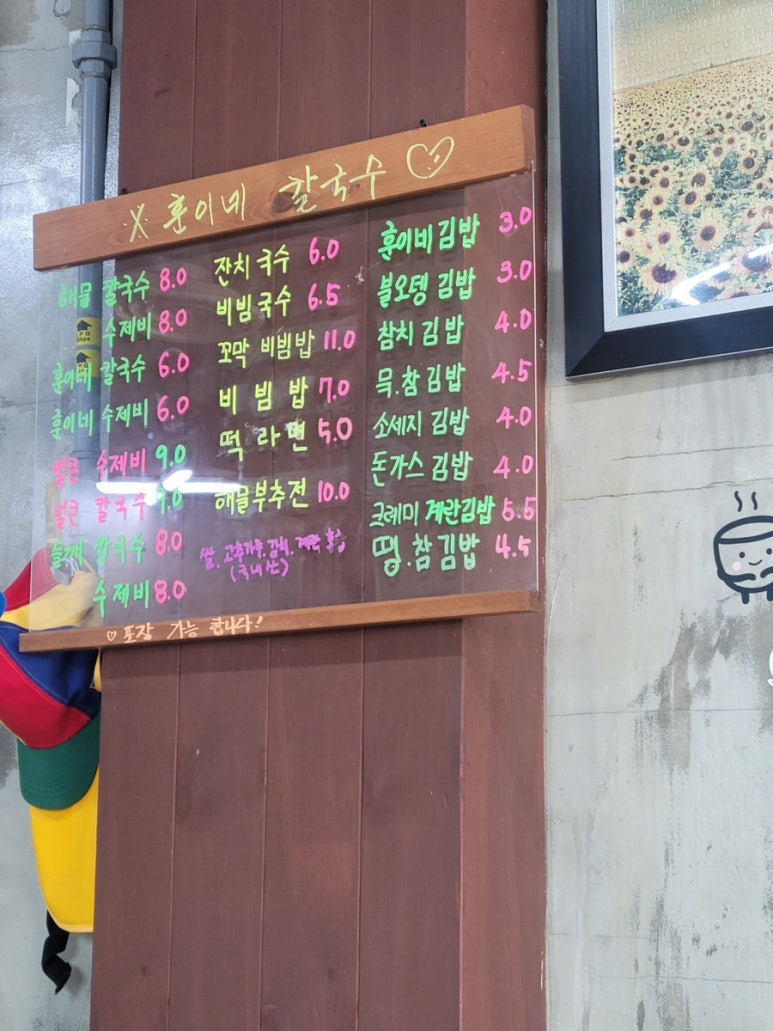 ※ 훈이네 칼국수 ♡
해물 칼국수 8.0
수제비 8.0
훈이네 칼국수 6.0
훈이네 수제비 6.0
얼큰 수제비 9.0
얼큰 칼국수 9.0
들깨 칼국수 8.0
수제비 8.0
잔치국수 6.0
비빔국수 6.5
꼬막 비빔밥 11.0
비빔밥 7.0
떡라면 5.0
해물부추전 10.0
쌀, 고추가루, 김치, 계란
(국내산)
훈이네김밥 3.0
불오뎅 김밥 3.0
참치 김밥 4.0
믁.참김밥 4.5
소세지 김밥 4.0
돈가스 김밥 4.0
크레미 계란김밥 5.5
땡.참김밥 4.5
♡ 포장 가능 합니다!